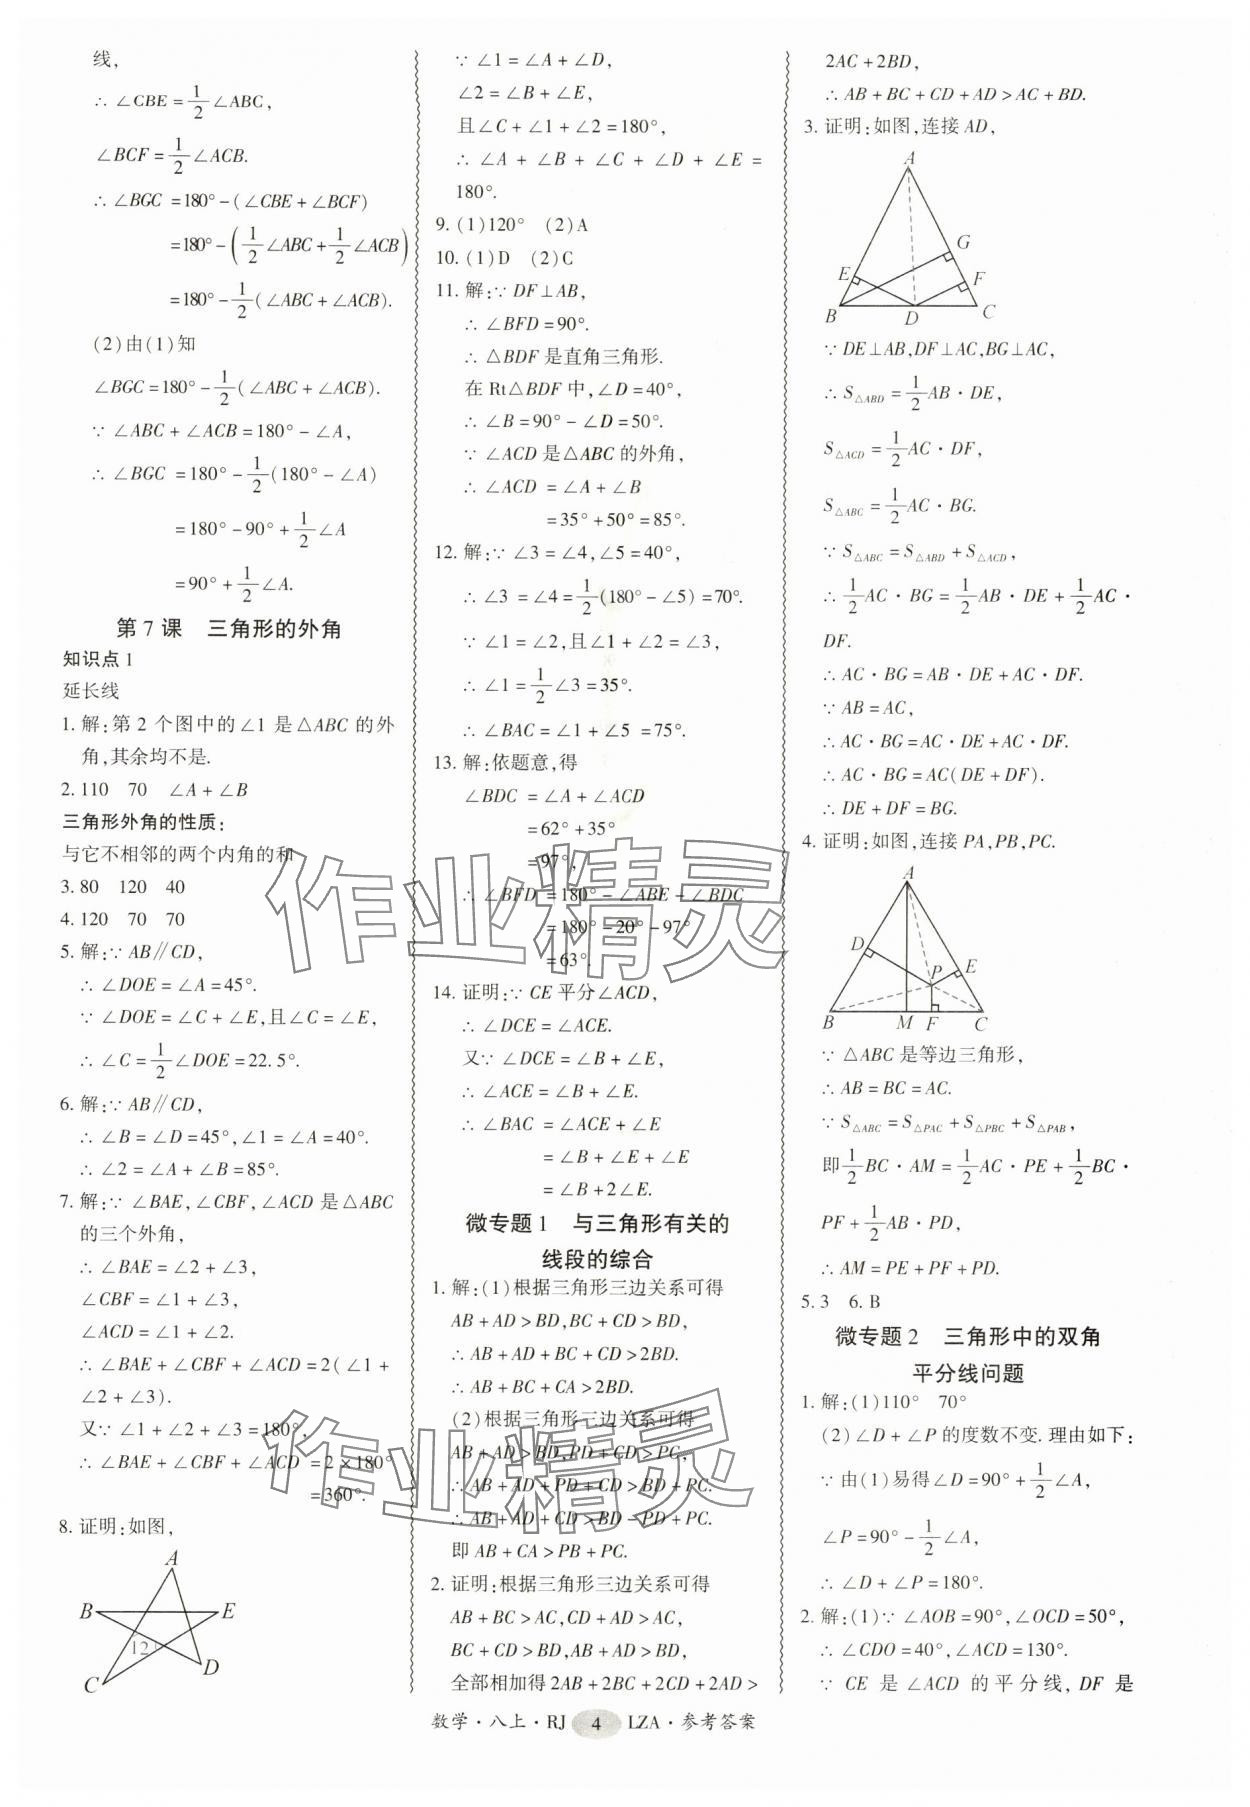 线，
∴ ∠CBE = 1/2 ∠ABC，
∠BCF = 1/2 ∠ACB.
∴ ∠BGC = 180° - (∠CBE + ∠BCF)
= 180° - (1/2 ∠ABC + 1/2 ∠ACB)
= 180° - 1/2 (∠ABC + ∠ACB).
(2)由(1)知
∠BGC = 180° - 1/2 (∠ABC + ∠ACB).
∵ ∠ABC + ∠ACB = 180° - ∠A，
∴ ∠BGC = 180° - 1/2 (180° - ∠A)
= 180° - 90° + 1/2 ∠A
= 90° + 1/2 ∠A.
第7课 三角形的外角
知识点1
延长线
1. 解：第2个图中的∠1是△ABC的外
角，其余均不是.
2. 110 70 ∠A + ∠B
三角形外角的性质：
与它不相邻的两个内角的和
3. 80 120 40
4. 120 70 70
5. 解：∵ AB∥CD，
∴ ∠DOE = ∠A = 45°.
∵ ∠DOE = ∠C + ∠E，且∠C = ∠E，
∴ ∠C = 1/2 ∠DOE = 22.5°.
6. 解：∵ AB∥CD，
∴ ∠B = ∠D = 45°，∠1 = ∠A = 40°.
∴ ∠2 = ∠A + ∠B = 85°.
7. 解：∵ ∠BAE，∠CBF，∠ACD是△ABC
的三个外角，
∴ ∠BAE = ∠2 + ∠3，
∠CBF = ∠1 + ∠3，
∠ACD = ∠1 + ∠2.
∴ ∠BAE + ∠CBF + ∠ACD = 2(∠1 +
∠2 + ∠3).
又∵ ∠1 + ∠2 + ∠3 = 180°，
∴ ∠BAE + ∠CBF + ∠ACD = 2 × 180°
= 360°.
8. 证明：如图，
A
B E
1 2
C D
∵ ∠1 = ∠A + ∠D，
∠2 = ∠B + ∠E，
且∠C + ∠1 + ∠2 = 180°，
∴ ∠A + ∠B + ∠C + ∠D + ∠E =
180°.
9. (1)120° (2)A
10. (1)D (2)C
11. 解：∵ DF⊥AB，
∴ ∠BFD = 90°.
∴ △BDF是直角三角形.
在Rt△BDF中，∠D = 40°，
∴ ∠B = 90° - ∠D = 50°.
∵ ∠ACD是△ABC的外角，
∴ ∠ACD = ∠A + ∠B
= 35° + 50° = 85°.
12. 解：∵ ∠3 = ∠4，∠5 = 40°，
∴ ∠3 = ∠4 = 1/2 (180° - ∠5) = 70°.
∵ ∠1 = ∠2，且∠1 + ∠2 = ∠3，
∴ ∠1 = 1/2 ∠3 = 35°.
∴ ∠BAC = ∠1 + ∠5 = 75°.
13. 解：依题意，得
∠BDC = ∠A + ∠ACD
= 62° + 35°
= 97°，
∴ ∠BFD = 180° - ∠ABE - ∠BDC
= 180° - 20° - 97°
= 63°.
14. 证明：∵ CE平分∠ACD，
∴ ∠DCE = ∠ACE.
又∵ ∠DCE = ∠B + ∠E，
∴ ∠ACE = ∠B + ∠E.
∴ ∠BAC = ∠ACE + ∠E
= ∠B + ∠E + ∠E
= ∠B + 2∠E.
微专题1 与三角形有关的
线段的综合
1. 解：(1)根据三角形三边关系可得
AB + AD > BD，BC + CD > BD，
∴ AB + AD + BC + CD > 2BD.
∴ AB + BC + CA > 2BD.
(2)根据三角形三边关系可得
AB + AD > BD，PD + CD > PC，
∴ AB + AD + PD + CD > BD + PC.
∴ AB + AD + CD > BD - PD + PC.
即 AB + CA > PB + PC.
2. 证明：根据三角形三边关系可得
AB + BC > AC，CD + AD > AC，
BC + CD > BD，AB + AD > BD，
全部相加得 2AB + 2BC + 2CD + 2AD >
2AC + 2BD，
∴ AB + BC + CD + AD > AC + BD.
3. 证明：如图，连接AD，
A
G
E F
B D C
∵ DE⊥AB，DF⊥AC，BG⊥AC，
∴ S△ABD = 1/2 AB · DE，
S△ACD = 1/2 AC · DF，
S△ABC = 1/2 AC · BG.
∵ S△ABC = S△ABD + S△ACD，
∴ 1/2 AC · BG = 1/2 AB · DE + 1/2 AC ·
DF.
∴ AC · BG = AB · DE + AC · DF.
∵ AB = AC，
∴ AC · BG = AC · DE + AC · DF.
∴ AC · BG = AC(DE + DF).
∴ DE + DF = BG.
4. 证明：如图，连接PA，PB，PC.
A
D P E
B M F C
∵ △ABC是等边三角形，
∴ AB = BC = AC.
∵ S△ABC = S△PAC + S△PBC + S△PAB，
即 1/2 BC · AM = 1/2 AC · PE + 1/2 BC ·
PF + 1/2 AB · PD，
∴ AM = PE + PF + PD.
5. 3 6. B
微专题2 三角形中的双角
平分线问题
1. 解：(1)110° 70°
(2)∠D + ∠P的度数不变. 理由如下：
∵ 由(1)易得∠D = 90° + 1/2 ∠A，
∠P = 90° - 1/2 ∠A，
∴ ∠D + ∠P = 180°.
2. 解：(1)∵ ∠AOB = 90°，∠OCD = 50°，
∴ ∠CDO = 40°，∠ACD = 130°.
∵ CE是∠ACD的平分线，DF是
数学·八上·RJ 4 LZA·参考答案
作业精灵
作业精灵